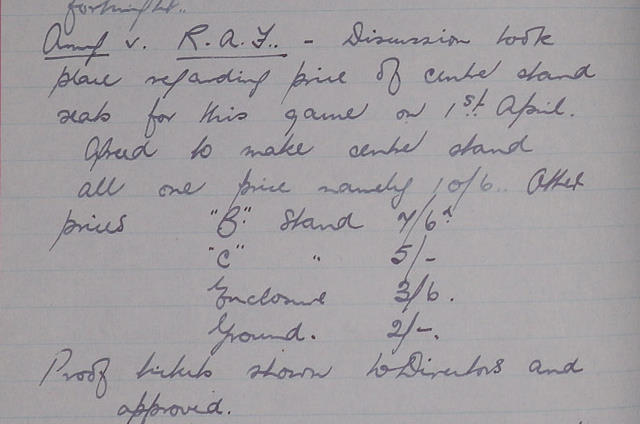 fortnight..
Army v. R.A.F.. - Discussion took
place regarding price of centre stand
seats for this game on 1st April.
Agreed to make centre stand
all one price namely 10/6.. Other
prices "B" Stand 7/6d
"C" " 5/-
Enclosure 3/6.
Ground. 2/-.
Proof tickets shown to Directors and
approved.